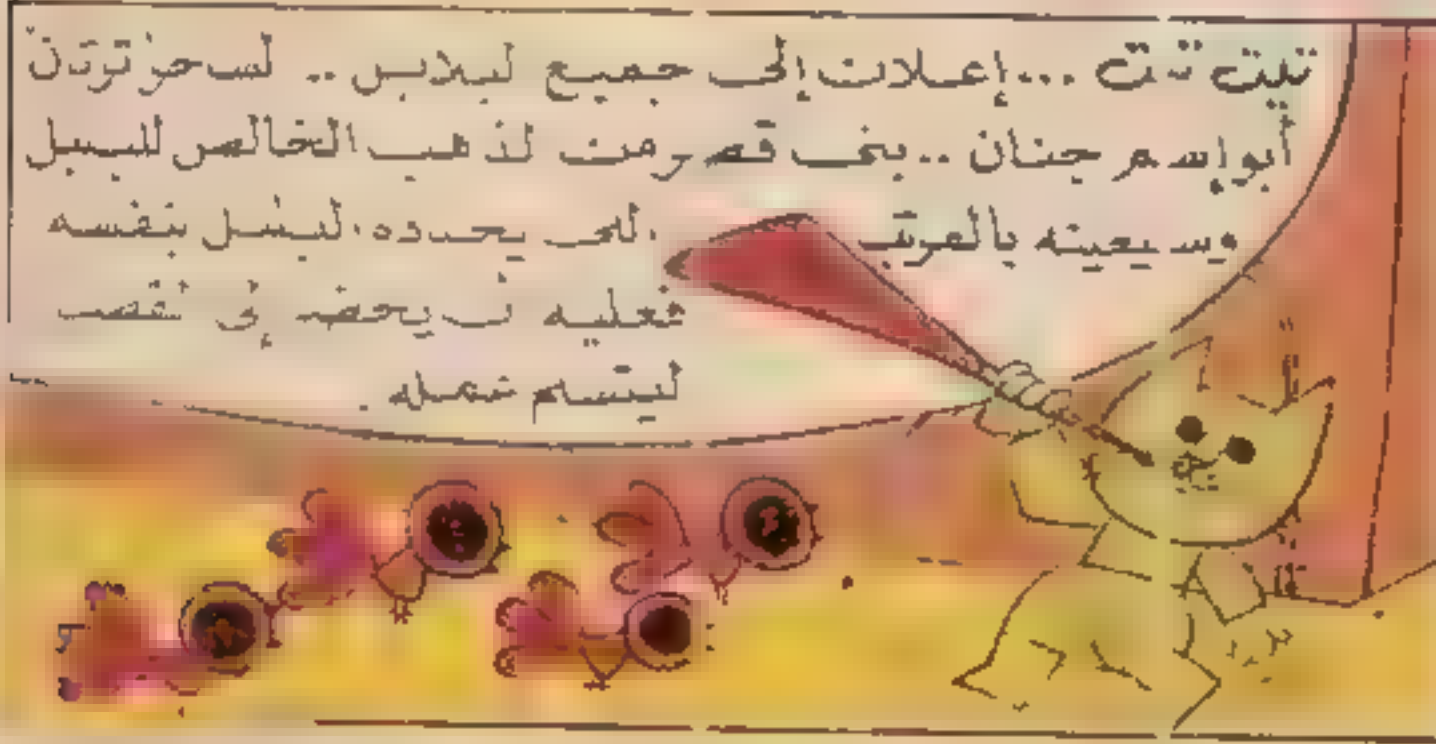 تيت تت ... إعلان إلى جميع لبلابس .. لساحر تردن
أبو إسم جنان .. بنى قصر من لذهب الخالص للبلبل
وسيعينه بالمرتب .. للى يحدده .. لبلبل بنفسه
فعليه ن يحضر إلى لقصر
ليتسلم عمله .